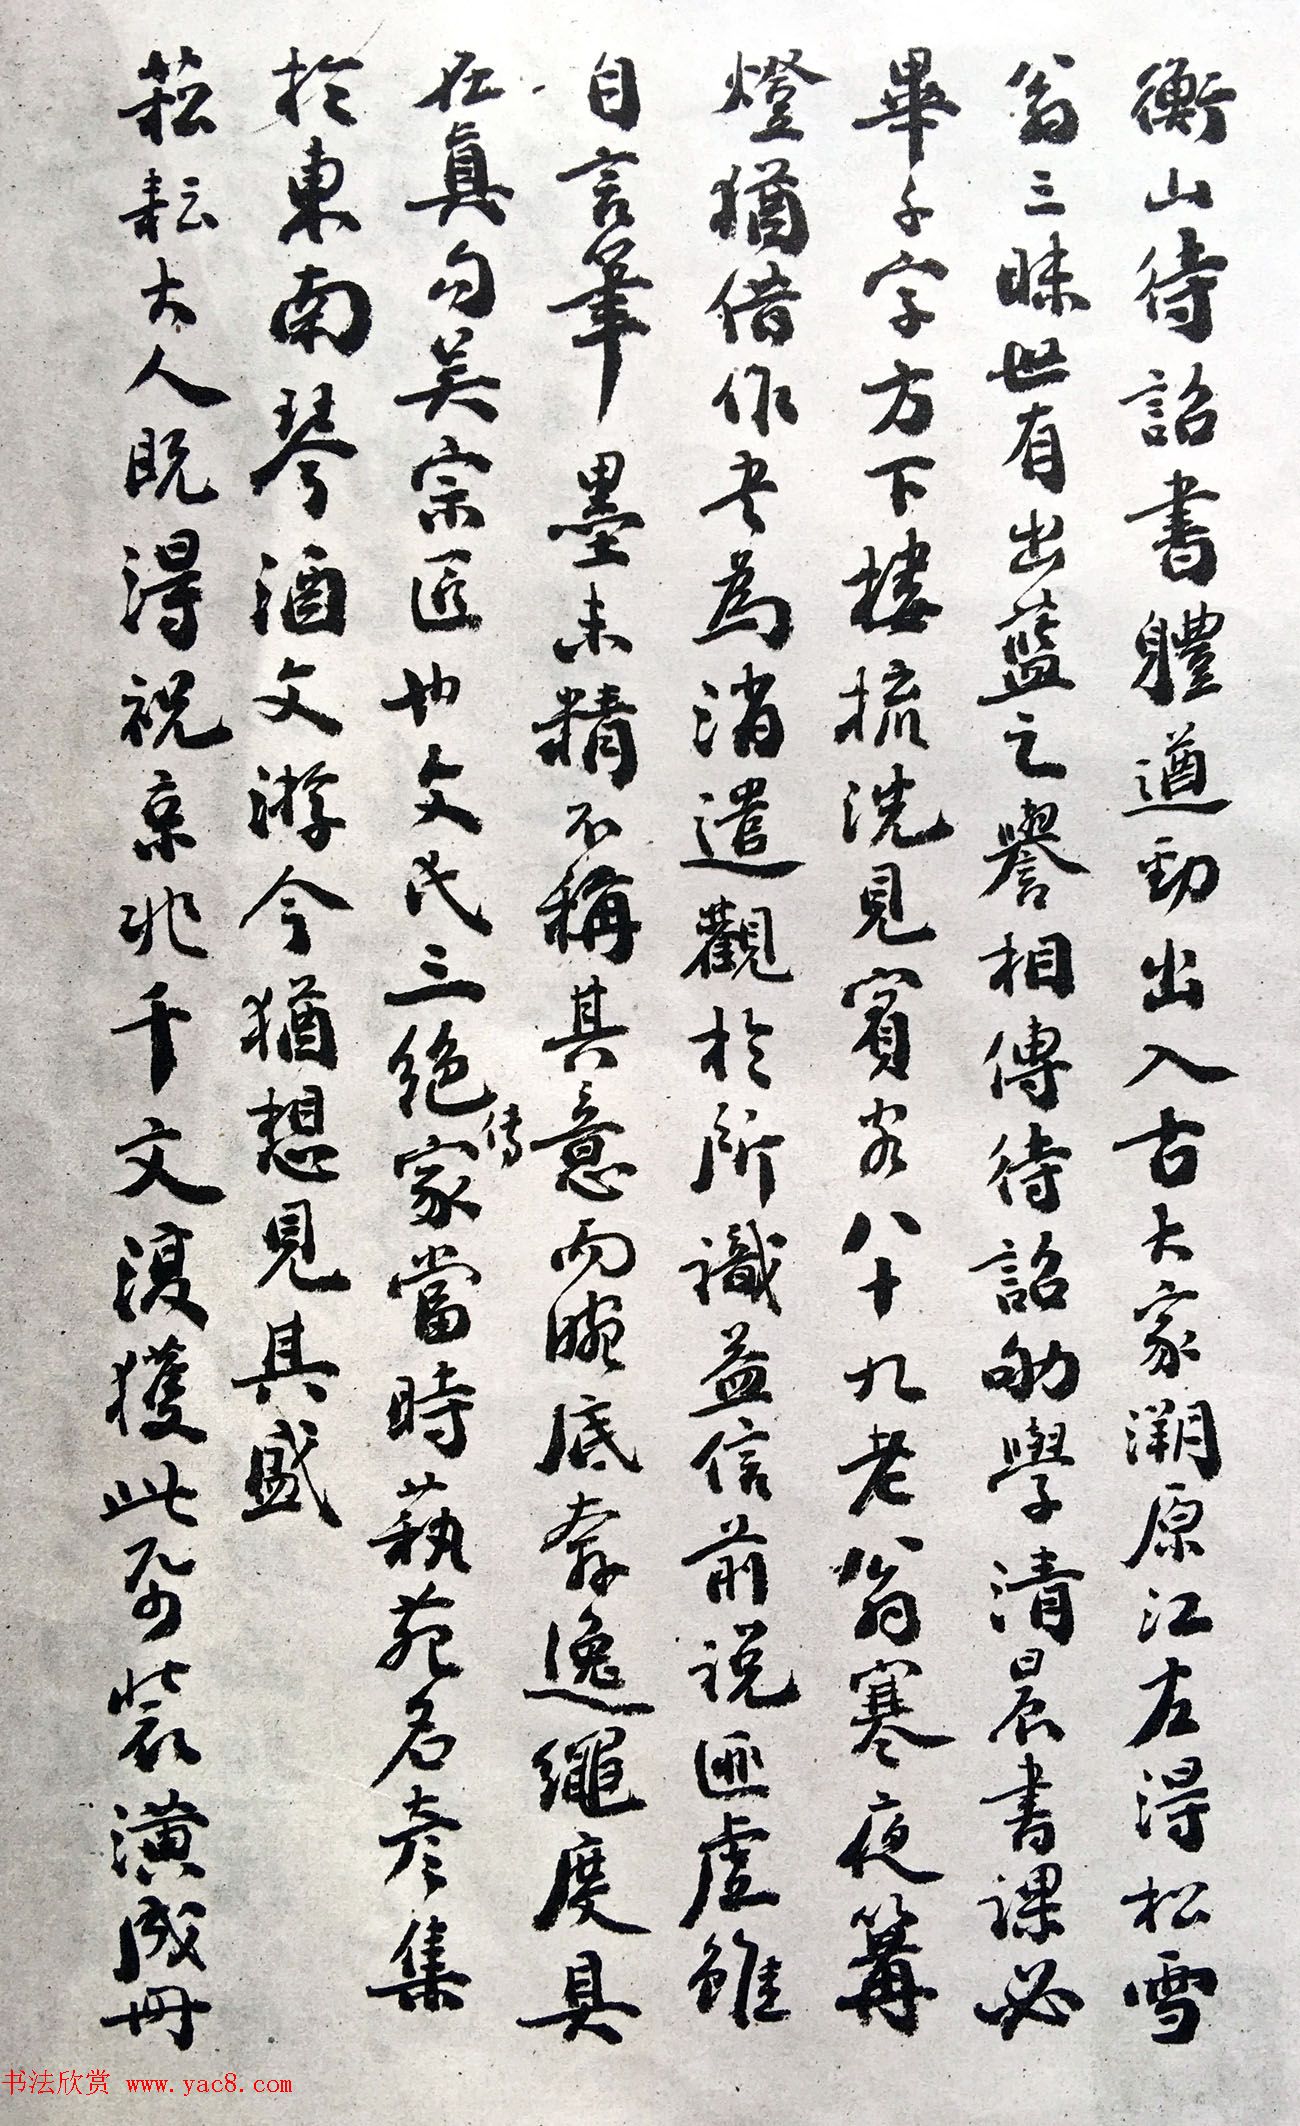 衡山待詔書體遒勁出入古大家溯原江左得松雪
翁三昧世有出藍之譽相傳待詔劬學清晨書課必
畢千字方下樓梳洗見賓客八十九老翁寒夜篝
燈猶借作書為消遣觀於所識益信前說匪虛雖
自言筆墨未精不稱其意而腕底奔逸繩度具
在真勾吴宗匠也文氏三絕傳家當時蓺苑名彥集
於東南琴酒文游今猶想見其盛
菘耘大人既得祝京兆千文復獲此咫裝潢成冊
书法欣赏 www.yac8.com